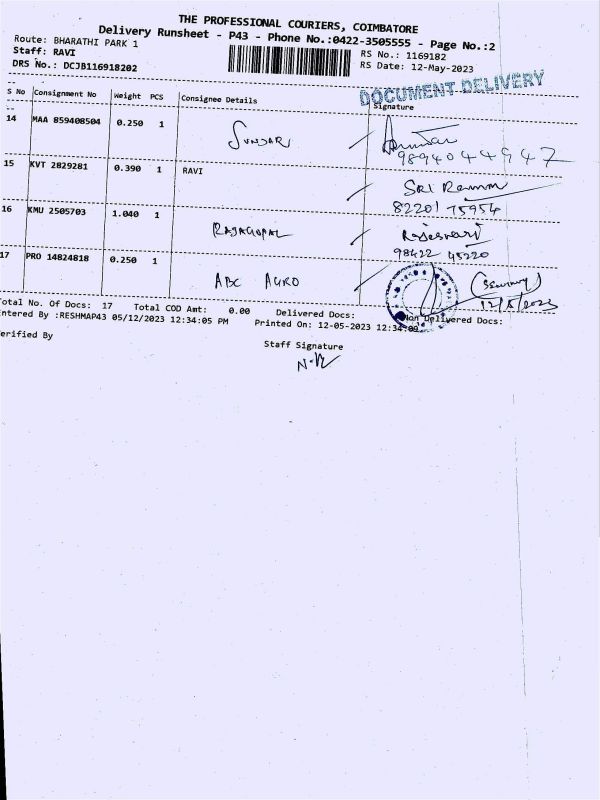 THE PROFESSIONAL COURIERS, COIMBATORE
Delivery Runsheet - P43 - Phone No.:0422-3505555 - Page No.:2
Route: BHARATHI PARK 1
RS No.: 1169182
Staff: RAVI
RS Date: 12-May-2023
DRS No.: DCJB116918202
DOCUMENT DELIVERY
S No Consignment No Weight PCS Consignee Details Signature
14 MAA 859408504 0.250 1 SUNDARI
9894044947
15 KVT 2829281 0.390 1 RAVI
SRI Ramm
82201 75954
16 KMU 2505703 1.040 1 RAJAGOPAL Rajeswari
98422 45220
17 PRO 14824818 0.250 1 ABC AGRO
12/5/2023
Total No. Of Docs: 17 Total COD Amt: 0.00 Delivered Docs: Non Delivered Docs:
ntered By :RESHMAP43 05/12/2023 12:34:05 PM Printed On: 12-05-2023 12:34:09
erified By
Staff Signature